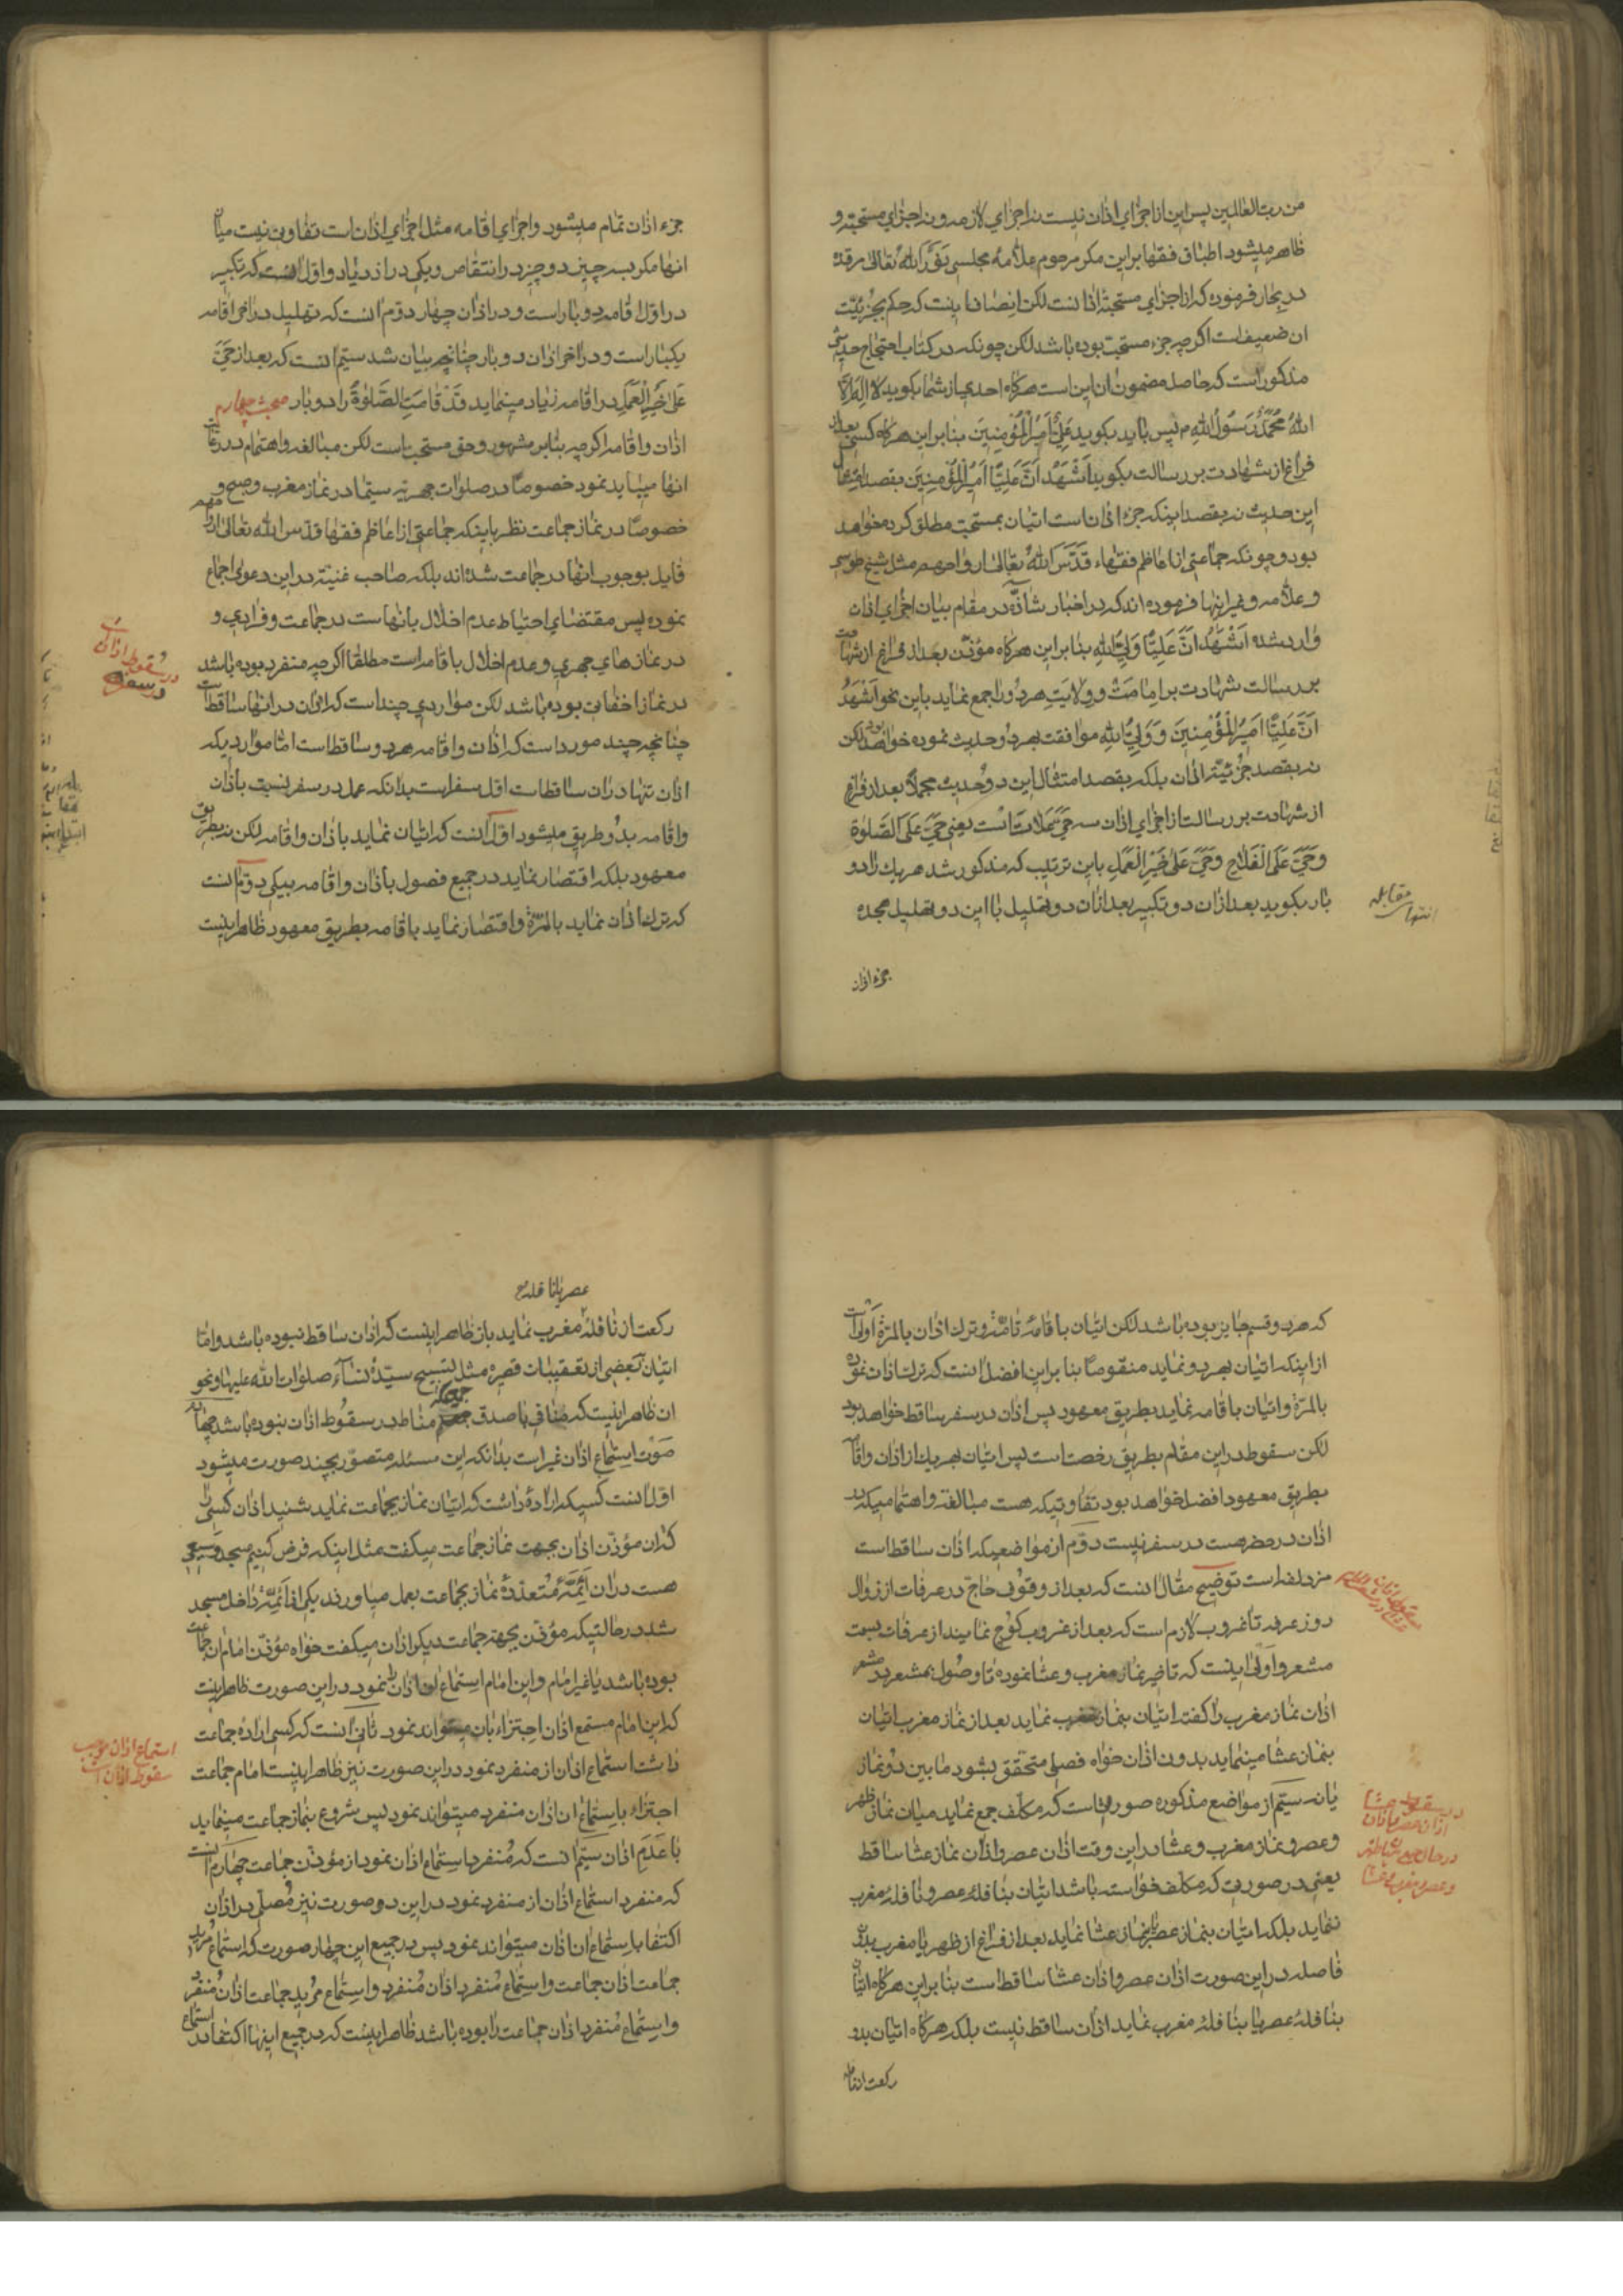 من رب العالمین پس این از اجزای اذان نیست نه اجزای لازمه و نه اجزای مستحبه و
ظاهر میشود اطباق فقها بر این مکر مرحوم علامه مجلسی نوّر الله تعالی مرقده
در بحار فرموده که از اجزای مستحبۀ اذانست لکن انصاف اینست که حکم بجزئیّت
ان ضعیف است اکر چه جزء مستحب بوده باشد لکن چونکه در کتاب احتجاج حدیثی
مذکور است که حاصل مضمون ان این است هرکاه احدی از شما بکوید لا اله الّا
اللهُ مُحَمَّدٌ رَسُولُ اللهِ پس باید بکوید عَلِیٌّ اَمِیرُ الْمُؤْمِنِینَ بنابر این هرکاه کسی بعد از
فراغ از شهادت بر رسالت بکوید اَشْهَدُ اَنَّ عَلِیًّا اَمِیرُ الْمُؤْمِنِینَ بقصد
این حدیث نه بقصد اینکه جزء اذان است اتیان بمستحب مطلق کرده خواهد
بود و چونکه جماعتی از اعاظم فقهاء قَدَّسَ اللهُ تعالی ارواحهم مثل شیخ طوسی
و علامه و غیر اینها فرموده اند که در اخبار شاذّه در مقام بیان اجزای اذان
وارد شده اَشْهَدُ اَنَّ عَلِیًّا وَلِیُّ اللهِ بنابر این هرکاه مؤذّن بعد از فراغ از شهادت
بر رسالت شهادت بر امامت و ولایت هر دو را جمع نماید باین نحو اَشْهَدُ
اَنَّ عَلِیًّا اَمِیرُ الْمُؤْمِنِینَ وَ وَلِیُّ اللهِ موافقت بهر دو حدیث نموده خواهد بود لکن
نه بقصد جزئیّة اذان بلکه بقصد امتثال این دو حدیث مجملاً بعد از فراغ
از شهادت بر رسالت از اجزای اذان سه حَیَّعَلات است یعنی حَیَّ عَلَی الصَّلوٰة
وَحَیَّ عَلَی الْفَلاحِ وَحَیَّ عَلیٰ خَیْرِ الْعَمَلِ باین ترتیب که مذکور شد هر یک را دو
بار بکوید بعد از ان دو تکبیر بعد از ان دو تهلیل با این دو تهلیل مجده
انتهاء مقابله
جزء اذان
جزء اذان تمام میشود و اجزای اقامه مثل اجزای اذان است تفاوتی نیست میان
انها مکر بسه چیز دو چیز در انتقاص و یکی در ازدیاد و اوّل انست که تکبیر
در اوّل اقامه دو بار است و در اذان چهار دوّم انست که تهلیل در اخر اقامه
یکبار است و در اخر اذان دو بار چنانچه بیان شد سیّم انست که بعد از حَیَّ
عَلیٰ خَیْرِ الْعَمَلِ در اقامه زیاد مینماید قَدْ قامَتِ الصَّلوٰةُ را دو بار مبحث چهارم
اذان و اقامه اکر چه بنابر مشهور و حق مستحب است لکن مبالغه و اهتمام در رعایت
انها میباید نمود خصوصاً در صلوات جهریّه سیّما در نماز مغرب و صبح و
خصوصاً در نماز جماعت نظر باینکه جماعتی از اعاظم فقها قدّس الله تعالی ارواحهم
قایل بوجوب انها در جماعت شده اند بلکه صاحب غنیّة در این دعوی اجماع
نموده پس مقتضای احتیاط عدم اخلال بانهاست در جماعت و فرادی و
در نمازهای جهری و عدم اخلال باقامه است مطلقا اکر چه منفرد بوده باشد
در نماز اخفاتی بوده باشد لکن مواردی چند است که اذان در انها ساقط است
چنانچه چند مورد است که اذان و اقامه هر دو ساقط است امّا مواردیکه
اذان تنها در ان ساقط است اوّل سفر است بدانکه عمل در سفر نسبت باذان
و اقامه بدو طریق میشود اوّل انست که اتیان نماید باذان و اقامه لکن نه بطریق
معهود بلکه اقتصار نماید در جمیع فصول باذان و اقامه بیکی دوّم انست
که ترک اذان نماید بالمرّة و اقتصار نماید باقامه بطریق معهود ظاهر اینست
در سقوط اذان
در سفر
که هر دو قسم جایز بوده باشد لکن اتیان باقامۀ تامّه و ترک اذان بالمرّة اَولی است
از اینکه اتیان بهر دو نماید منقوصاً بنابر این افضل انست که ترک اذان نموده
بالمرّة و اتیان باقامه نماید بطریق معهود پس اذان در سفر ساقط خواهد بود
لکن سقوط در این مقام بطریق رخصت است پس اتیان بهر یک از اذان و اقامه
بطریق معهود افضل خواهد بود تفاوتیکه هست مبالغه و اهتمامیکه در
اذان در حضر هست در سفر نیست دوّم از مواضعیکه اذان ساقط است
مزدلفه است توضیح مقال انست که بعد از وقوف حاج در عرفات از زوال
روز عرفه تا غروب لازم است که بعد از غروب کوچ نمایند از عرفات بسمت
مشعر و اَولی اینست که تاخیر نماز مغرب و عشا نموده تا وصول بمشعر در مشعر
اذان نماز مغرب را کفته اتیان بنماز مغرب نماید بعد از نماز مغرب اتیان
بنماز عشا مینماید بدون اذان خواه فصلی متحقق بشود مابین دو نماز
یا نه سیّم از مواضع مذکوره صورتی است که مکلّف جمع نماید میان نماز ظهر
و عصر و نماز مغرب و عشا در این وقت اذان عصر و اذان نماز عشا ساقط
یعنی در صورتی که مکلّف خواسته باشد اتیان بنافلۀ عصر و نافلۀ مغرب
ننماید بلکه اتیان بنماز عصر یا نماز عشا نماید بعد از فراغ از ظهر یا مغرب بدون
فاصله در این صورت اذان عصر و اذان عشا ساقط است بنابر این هرکاه اتیان
بنافلۀ عصر یا بنافلۀ مغرب نماید اذان ساقط نیست بلکه هرکاه اتیان بدو
در سقوط
اذان عصر
رکعت از نافله
عصر یا نافلۀ
رکعت از نافلۀ مغرب نماید باز ظاهر اینست که اذان ساقط نبوده باشد و امّا
اتیان ببعضی از تعقیبات قصیره مثل تسبیح سیّدۀ نساء صلوات الله علیها و نحو
ان ظاهر اینست که منافی با صدق جمعیکه مناط در سقوط اذان بنوده باشد چهارم
صَوْت استماع اذان غیر است بدانکه این مسئله متصوّر بچند صورت میشود
اوّل انست کسیکه ارادۀ داشت که اتیان نماز بجماعت نماید بشنید اذان کسی را
که ان مؤذّن اذان بجهت نماز جماعت میکفت مثل اینکه فرض کنیم مسجد وسیعی
هست در ان اَئِمَّۀ مُتعدّدۀ نماز بجماعت بعمل میاورند یکی از اَئِمّه داخل مسجد
شد در حالتیکه مؤذّن بجهة جماعت دیکر اذان میکفت خواه مؤذّن امام ان جماعت
بوده باشد یا غیر امام و این امام استماع ان اذان نمود در این صورت ظاهر اینست
که این امام مستمع اذان اجتزاء بان میتواند نمود ثانی انست که کسی ارادۀ جماعت
داشت استماع اذان از منفرد نمود در این صورت نیز ظاهر اینست امام جماعت
اجتزاء باستماع ان اذان منفرد میتواند نمود پس شروع بنماز جماعت مینماید
با عَدَمِ اذان سیّم انست که مُنفرد استماع اذان نمود از مؤذّن جماعت چهارم انست
که منفرد استماع اذان از منفرد نمود در این دو صورت نیز مُصلّی در اذان
اکتفا باستماع ان اذان میتواند نمود پس در جمیع این چهار صورت که استماع مُرید
جماعت اذان جماعت و استماع مُنفرد اذان مُنفرد و استماع مُرید جماعت اذان مُنفرد
و استماع مُنفرد اذان جماعت را بوده باشد ظاهر اینست که در جمیع اینها اکتفا در استماع
استماع اذان موجب
سقوط اذان است